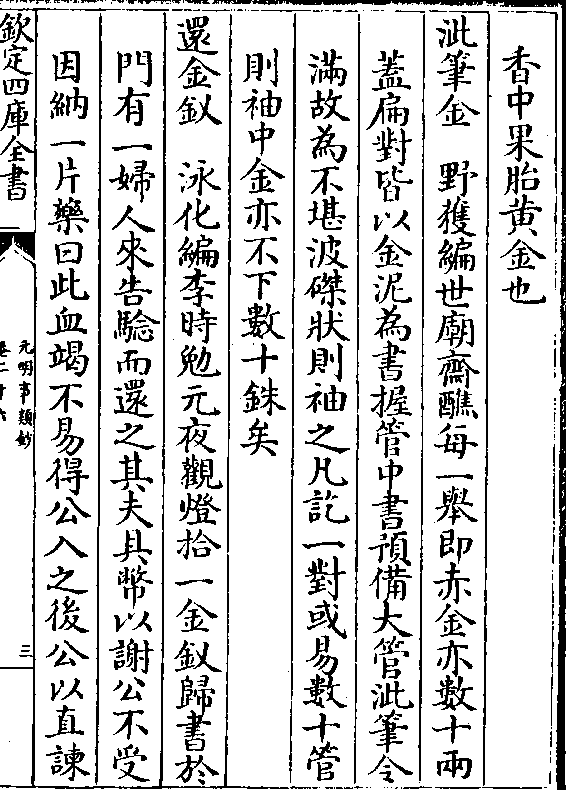 香中果胎黄金也
泚筆金　野獲編世廟齋醮每一舉即赤金亦數十兩
蓋扁對皆以金泥為書握管中書預備大管泚筆令
滿故為不堪波磔狀則袖之凡訖一對或易數十管
則袖中金亦不下數十銖矣
還金釵　泳化編李時勉元夜觀燈拾一金釵歸書於
門有一婦人來告騐而還之其夫具幣以謝公不受
因納一片藥曰此血竭不易得公入之後公以直諫
欽定四庫全書
元明事類鈔
卷二十六
三